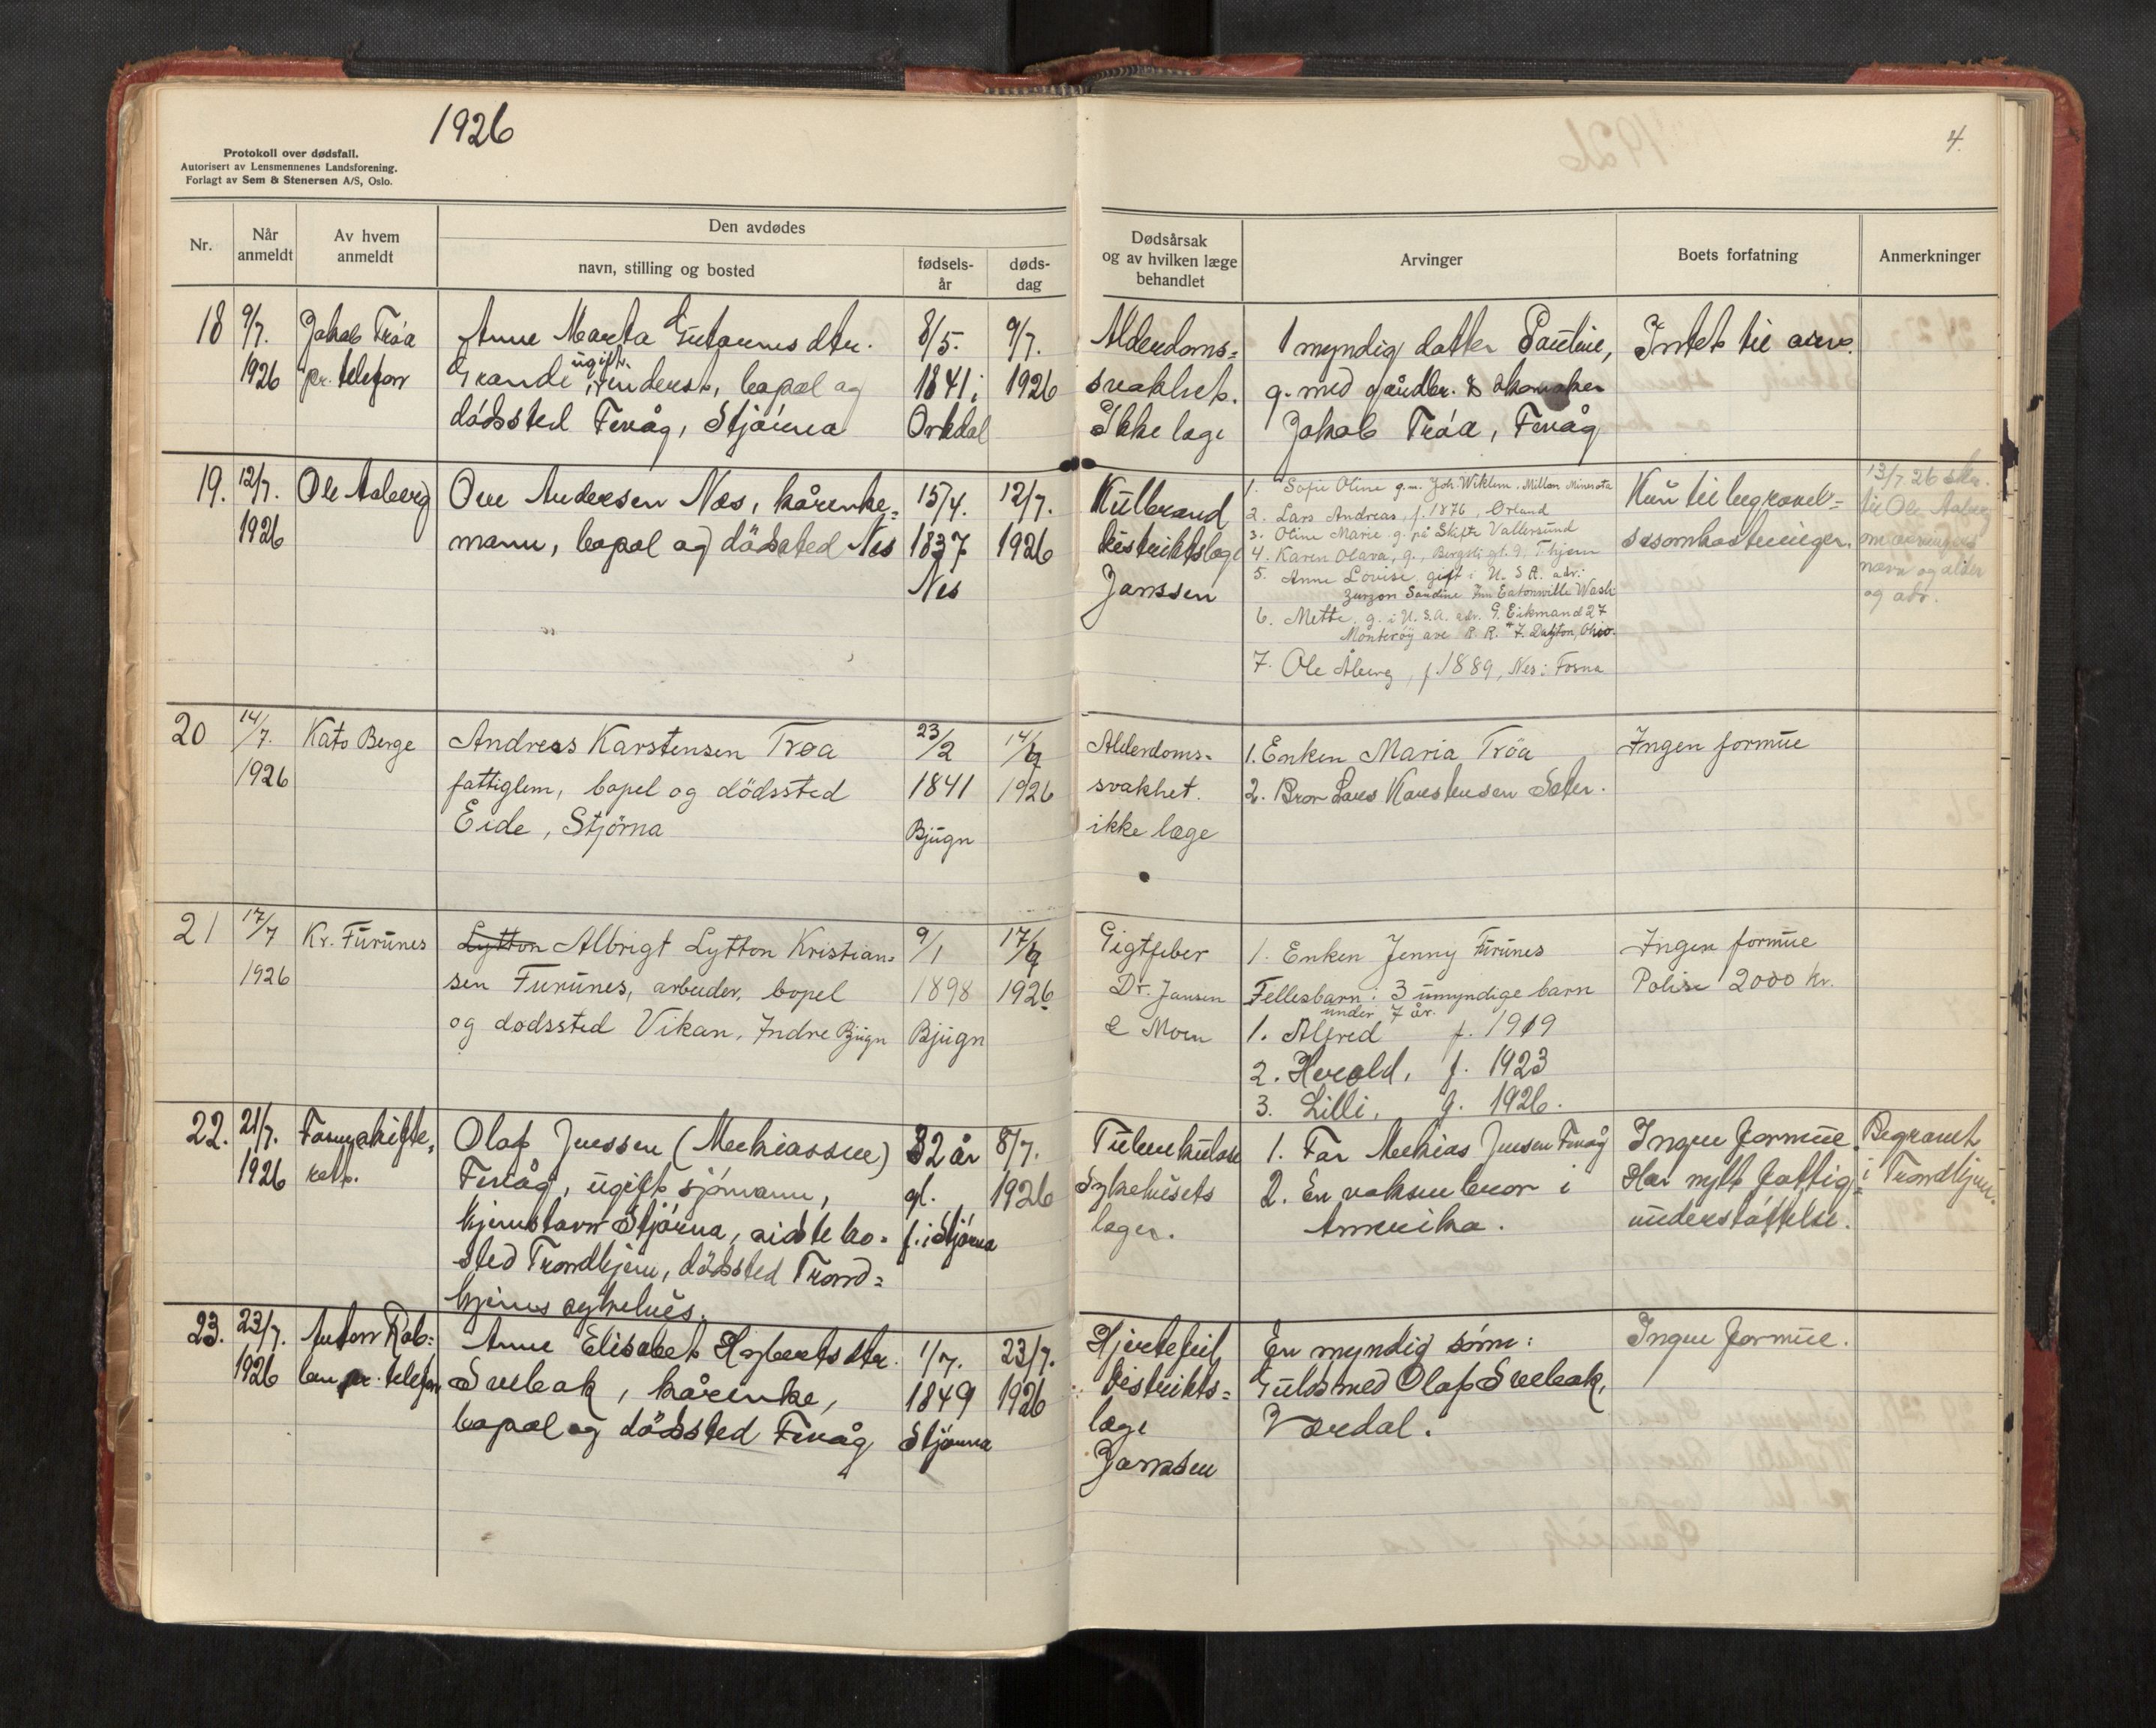 1926
4.
Protokoll over dødsfall.
Autorisert av Lensmennenes Landsforening.
Forlagt av Sem & Stenersen A/S, Oslo.
Nr.
Når
anmeldt
Av hvem
anmeldt
Den avdødes
navn, stilling og bosted
fødsels-
år
døds-
dag
Dødsårsak
og av hvilken læge
behandlet
Arvinger
Boets forfatning
Anmerkninger
18
9/7.
1926
Jakob Tröa
pr. telefon
Anne Marta Gutormsdtr.
Grande, ugift, bopæl og
dödssted Fevåg, Stjörna
8/5.
1841 i
Orkdal
9/7.
1926
Alderdoms=
svakhet.
Ikke læge
1 myndig datter Pauline,
g. med gårdbr. & skomaker
Jakob Tröa, Fevåg
Intet til arv.
19.
12/7.
1926
Ole Aaberg
Ove Andersen Nes, kårenke=
mann, bopæl og dödssted Nes
15/4.
1837
Nes
12/7.
1926
Kulbrand
distriktslæge
Janssen
1. Sofie Oline g.m. Joh. Wiklem, Millan Minesota
2. Lars Andreas, f. 1876, Örland
3. Oline Marie, g. på Skifte Vallersund
4. Karen Olava, g., Bergsli gt. 9, T.hjem
5. Anne Lovise, gift i U.S.A. adr.
Sandine Eatonville Wash
6. Mette, g. i U.S.A. adr. G. Eikmand 27
Monteröy ave R. R. #7. Dayton, Ohio.
7. Ole Åberg, f. 1889, Nes i Fosna
Kun til begravel=
sesomkostninger.
13/7 26 skr.
til Ole Aaberg
om arvingers
navn og alder
og adr.
20
14/7.
1926
Kato Berge
Andreas Karstensen Tröa
fattiglem, bopel og dödssted
Eide, Stjörna
23/2
1841
Bjugn
14/7
1926
Alderdoms-
svakhet.
ikke læge
1. Enken Maria Tröa
2. Bror Lars Karstensen Sæter.
Ingen formue
21
17/7
1926
Kr. Furunes
Lytton Albrigt Lytton Kristian=
sen Furunes, arbeider, bopel
og dodssted Vikan, Indre Bjugn
9/1
1898
Bjugn
17/7
1926
Gigtfeber
Dr. Jansen
& Moen
1. Enken Jenny Furunes
Fellesbarn: 3 umyndige barn
under 7 år.
1. Alfred f. 1919
2. Herold, f. 1923
3. Lilli, f. 1926.
Ingen formue
Polise 2000 kr.
22.
21/7.
1926
Fosnaskifte,
rett.
Olaf Jenssen (Mekiassen)
Fevåg, ugift sjömann,
hjemstavn Stjörna, sidste bo=
sted Trondhjem, dödssted Trond=
hjems sykehus.
32 år
gl.
f. i Stjörna
8/7.
1926
Tuberkulose
Sykehusets
læger.
1. Far Mekias Jensen Fevåg
2. En voksen bror i
Amerika.
Ingen formue.
Har nytt fattig=
understöttelse.
Begravet
i Trondhjem.
23.
23/7.
1926
Anton Rab=
ben pr. telefon
Anne Elisabet Hagbertsdtr.
Svebak, kårenke,
bopæl og dödssted Fevåg
1/7.
1849
Stjörna
23/7.
1926
Hjertefeil
Distrikts=
læge
Janssen
En myndig sönn:
Gulosmed Olaf Sveback,
Værdal.
Ingen formue.